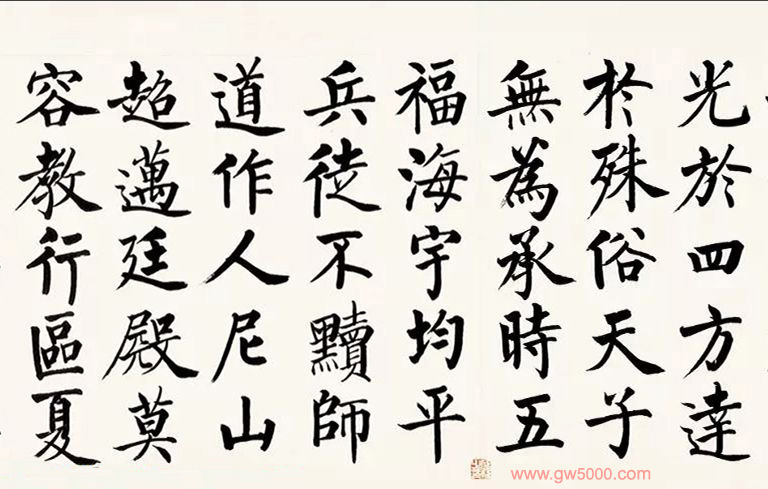 光於四方達
於殊俗天子
無為承時五
福海宇均平
兵徒不黷師
道作人尼山
超邁廷殿莫
容教行區夏
www.gw5000.com